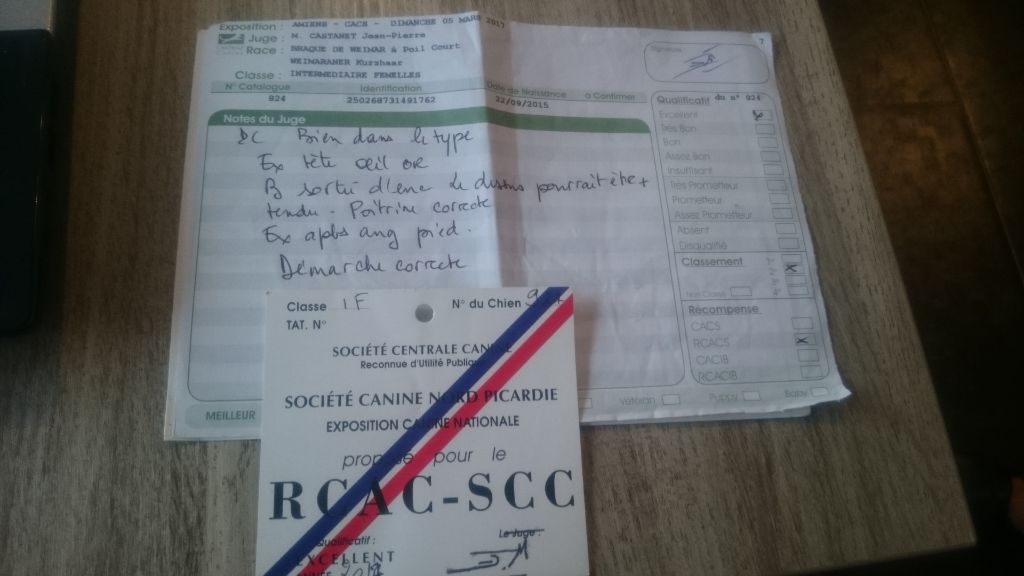 Exposition : AMIENS - CACS - DIMANCHE 05 MARS 2017
Juge : M. CASTANET Jean-Pierre
Race : BRAQUE DE WEIMAR à Poil Court
WEIMARANER Kurzhaar
Classe : INTERMEDIAIRE FEMELLES
Signature
7
N° Catalogue Identification Date de Naissance à Confirmer
924 250268731491762 22/09/2015
Notes du Juge
Bien dans le type
Ex tête œil or
B sortie d'enc Le dessus pourrait être +
tendu - Poitrine correcte
Ex apbs ang pied.
Démarche correcte
Qualificatif du n° 924
Excellent
Très Bon
Bon
Assez Bon
Insuffisant
Très Prometteur
Prometteur
Assez Prometteur
Absent
Disqualifié
Classement
Non Classé
Récompense
CACS
RCACS
CACIB
RCACIB
MEILLEUR Vétéran Puppy Baby
Classe IF N° du Chien 924
TAT. N°
SOCIÉTÉ CENTRALE CANINE
Reconnue d'Utilité Publique
SOCIÉTÉ CANINE NORD PICARDIE
EXPOSITION CANINE NATIONALE
proposé pour le
RCAC-SCC
Qualificatif : Le Juge :
EXCELLENT
ANNÉE 2017